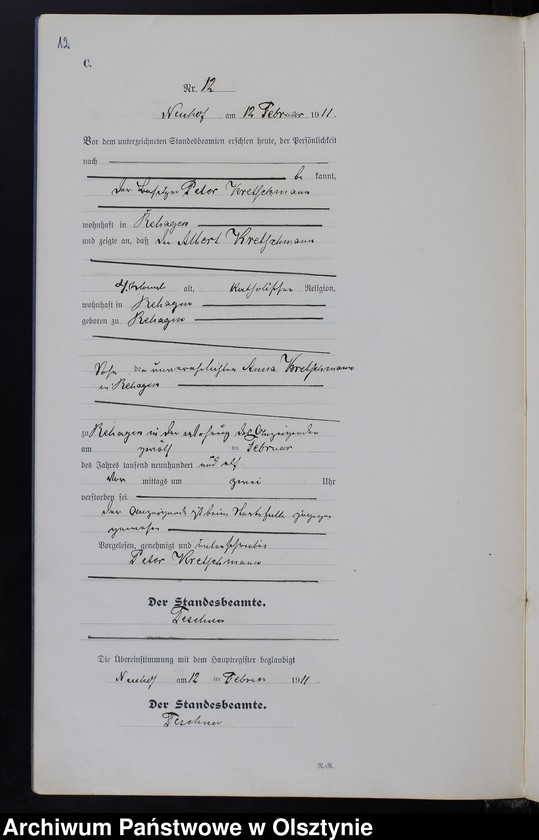 12
C.
Nr. 12
Neuhof am 12 Februar 1911.
Vor dem unterzeichneten Standesbeamten erschien heute, der Persönlichkeit
nach
be kannt,
der Besitzer Peter Kretschmann
wohnhaft in Rehagen
und zeigte an, daß der Albert Kretschmann
alt, katholischer Religion,
wohnhaft in Rehagen
geboren zu Rehagen
Sohn der unverehelichten Anna Kretschmann
in Rehagen
zu Rehagen in der Wohnung des Anzeigenden
am zwölf ten Februar
des Jahres tausend neunhundert und elf
Vor mittags um zwei Uhr
verstorben sei.
Der Anzeigende ist beim Sterbefalle zugegen
gewesen
Vorgelesen, genehmigt und unterschrieben
Peter Kretschmann
Der Standesbeamte.
Teschner
Die Übereinstimmung mit dem Hauptregister beglaubigt
Neuhof am 12 ten Februar 1911.
Der Standesbeamte.
Teschner
R.-R.
Archiwum Państwowe w Olsztynie